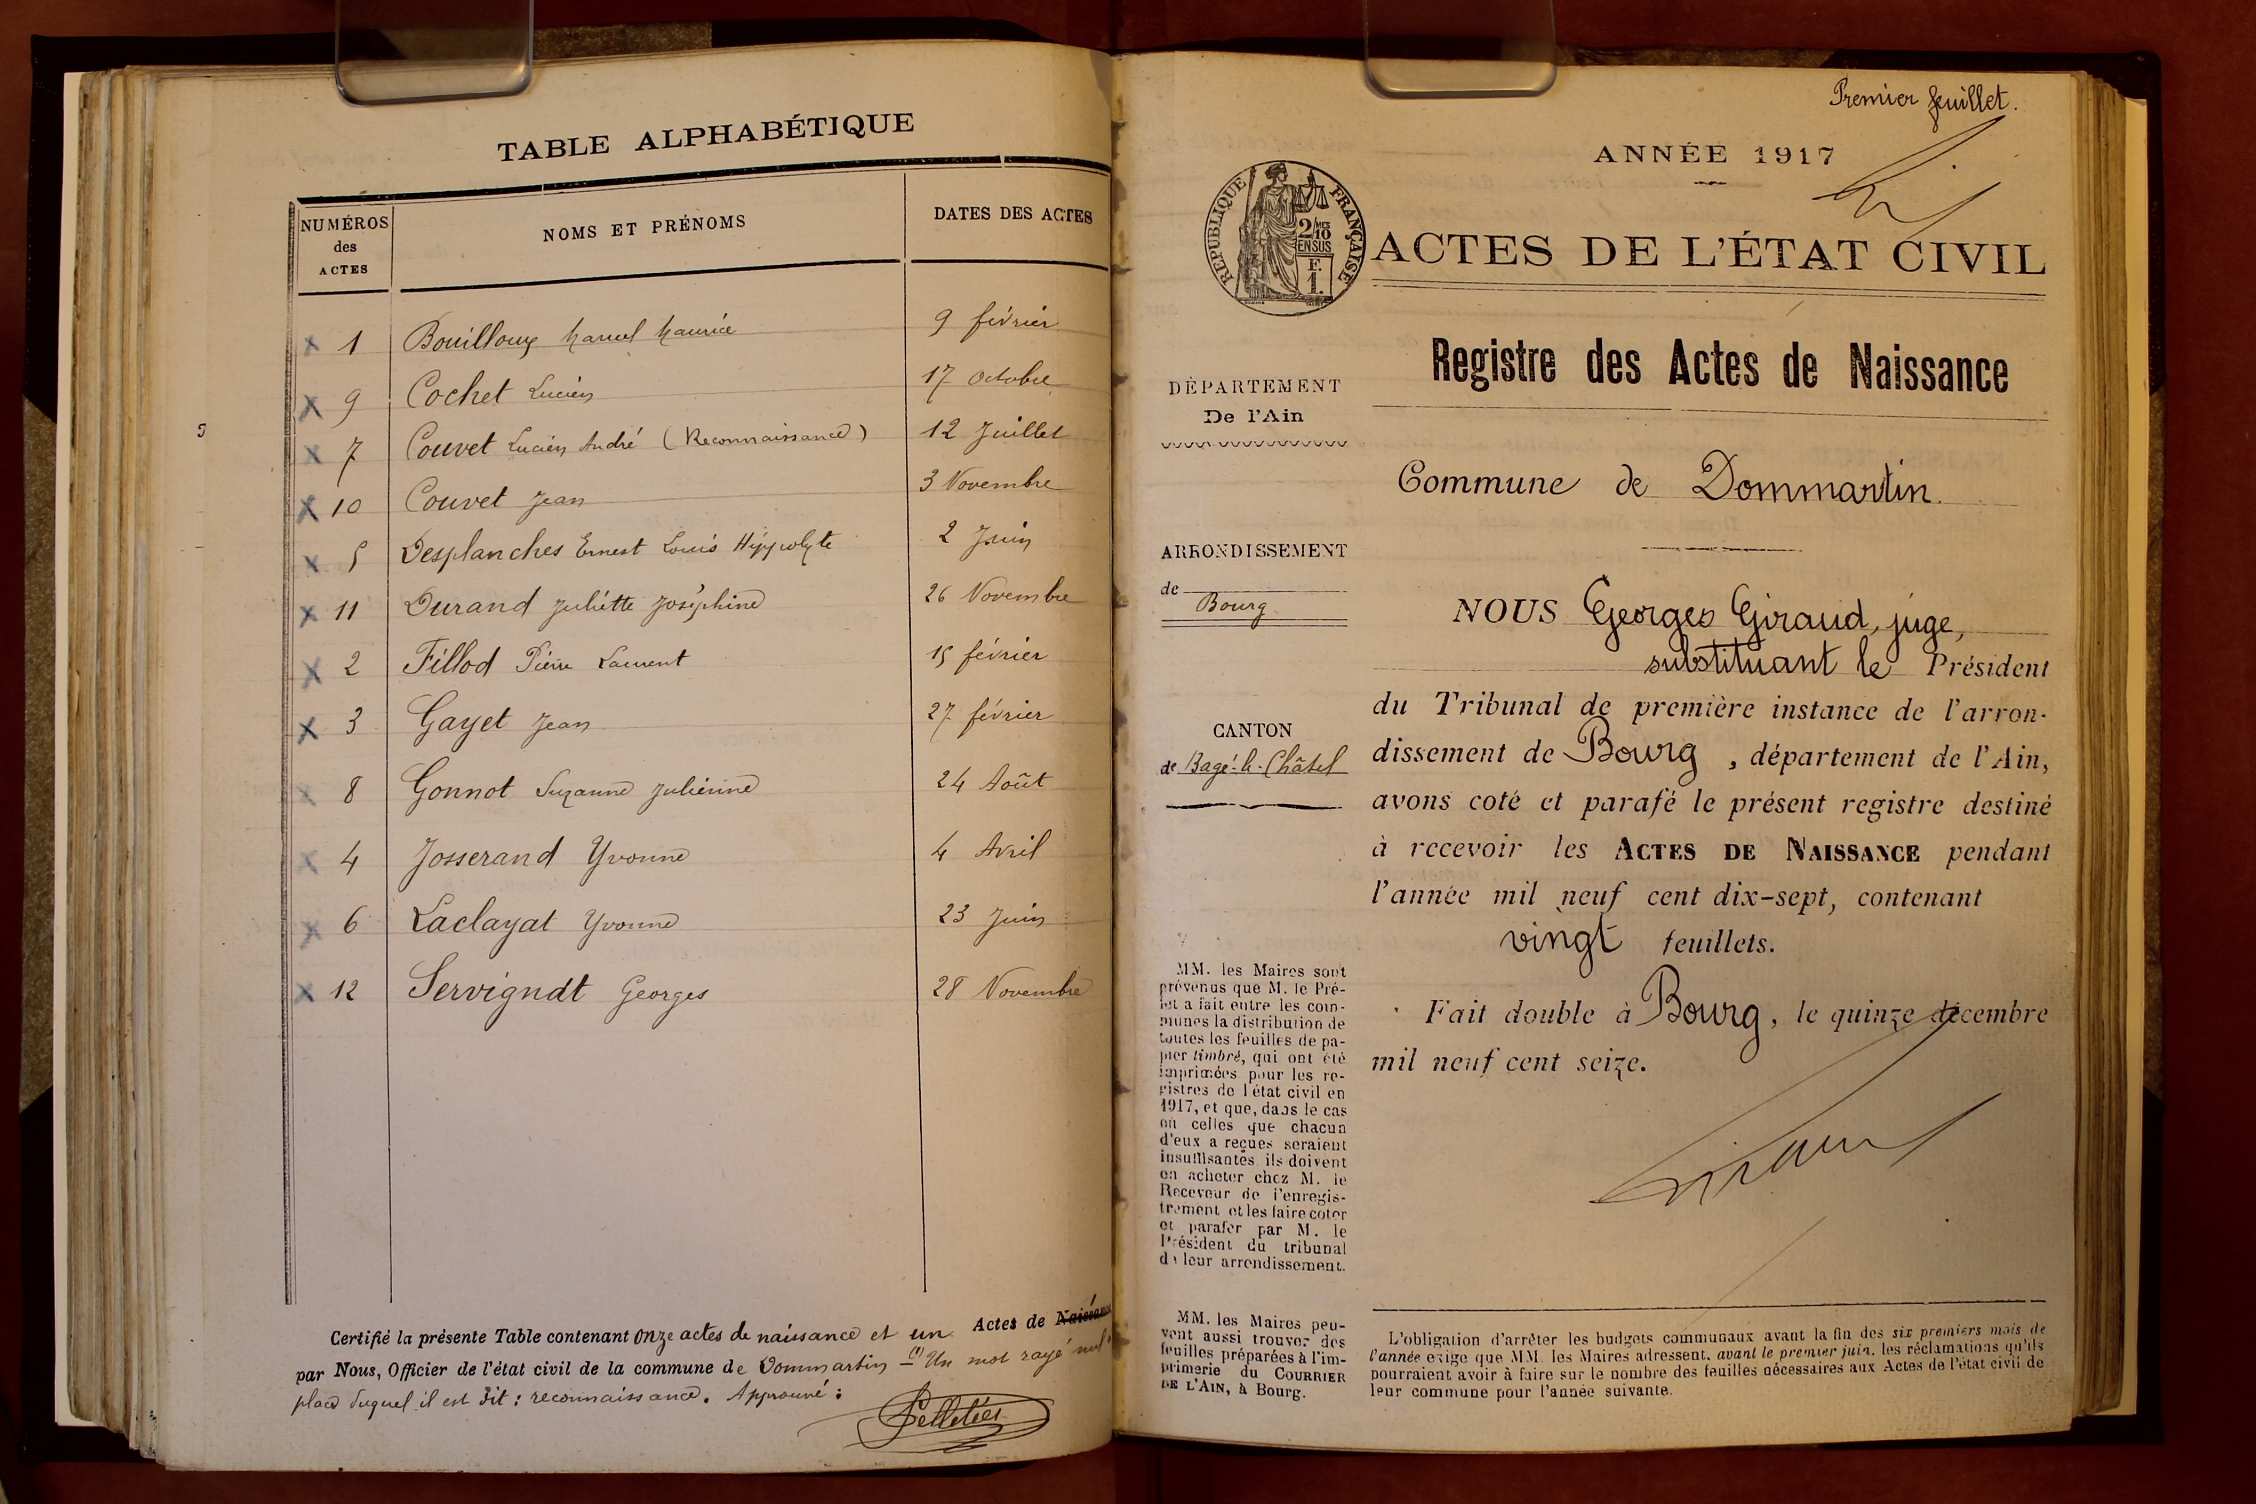 TABLE ALPHABÉTIQUE
NUMÉROS des ACTES
NOMS ET PRÉNOMS
DATES DES ACTES
1 Bouilloux Marcel Maurice 9 février
9 Cochet Lucien 17 octobre
7 Couvet Lucien André (Reconnaissance) 12 Juillet
10 Couvet Jean 3 Novembre
5 Desplanches Ernest Louis Hippolyte 2 Juin
11 Durand Juliette Joséphine 26 Novembre
2 Fillod Pierre Laurent 15 février
3 Gayet Jean 27 février
8 Gonnot Suzanne Julienne 24 Août
4 Josserand Yvonne 4 Avril
6 Laclayat Yvonne 23 Juin
12 Servigndt Georges 28 Novembre
Certifié la présente Table contenant onze actes de naissance et un Actes de Naissance
par Nous, Officier de l'état civil de la commune de Dommartin — (1) Un mot rayé nul
place duquel il est dit : reconnaissance. Approuvé :
Pelletier
Premier feuillet.
ANNÉE 1917
RÉPUBLIQUE FRANÇAISE
2/10
EN SUS
F.
1.
ACTES DE L'ÉTAT CIVIL
Registre des Actes de Naissance
DÉPARTEMENT
De l'Ain
Commune de Dommartin.
ARRONDISSEMENT
de
Bourg
CANTON
de Bagé-le-Châtel
NOUS Georges Giraud, juge,
substituant le Président
du Tribunal de première instance de l'arron-
dissement de Bourg, département de l'Ain,
avons coté et parafé le présent registre destiné
à recevoir les ACTES DE NAISSANCE pendant
l'année mil neuf cent dix-sept, contenant
vingt feuillets.
Fait double à Bourg, le quinze décembre
mil neuf cent seize.
Giraud
MM. les Maires sont
prévenus que M. le Pré-
fet a fait entre les com-
munes la distribution de
toutes les feuilles de pa-
pier timbré, qui ont été
imprimées pour les re-
gistres de l'état civil en
1917, et que, dans le cas
où celles que chacun
d'eux a reçues seraient
insuffisantes ils doivent
en acheter chez M. le
Receveur de l'enregis-
trement et les faire coter
et parafer par M. le
Président du tribunal
de leur arrondissement.
MM. les Maires peu-
vent aussi trouver des
feuilles préparées à l'im-
primerie du COURRIER
DE L'AIN, à Bourg.
L'obligation d'arrêter les budgets communaux avant la fin des six premiers mois de
l'année exige que MM. les Maires adressent, avant le premier juin, les réclamations qu'ils
pourraient avoir à faire sur le nombre des feuilles nécessaires aux Actes de l'état civil de
leur commune pour l'année suivante.